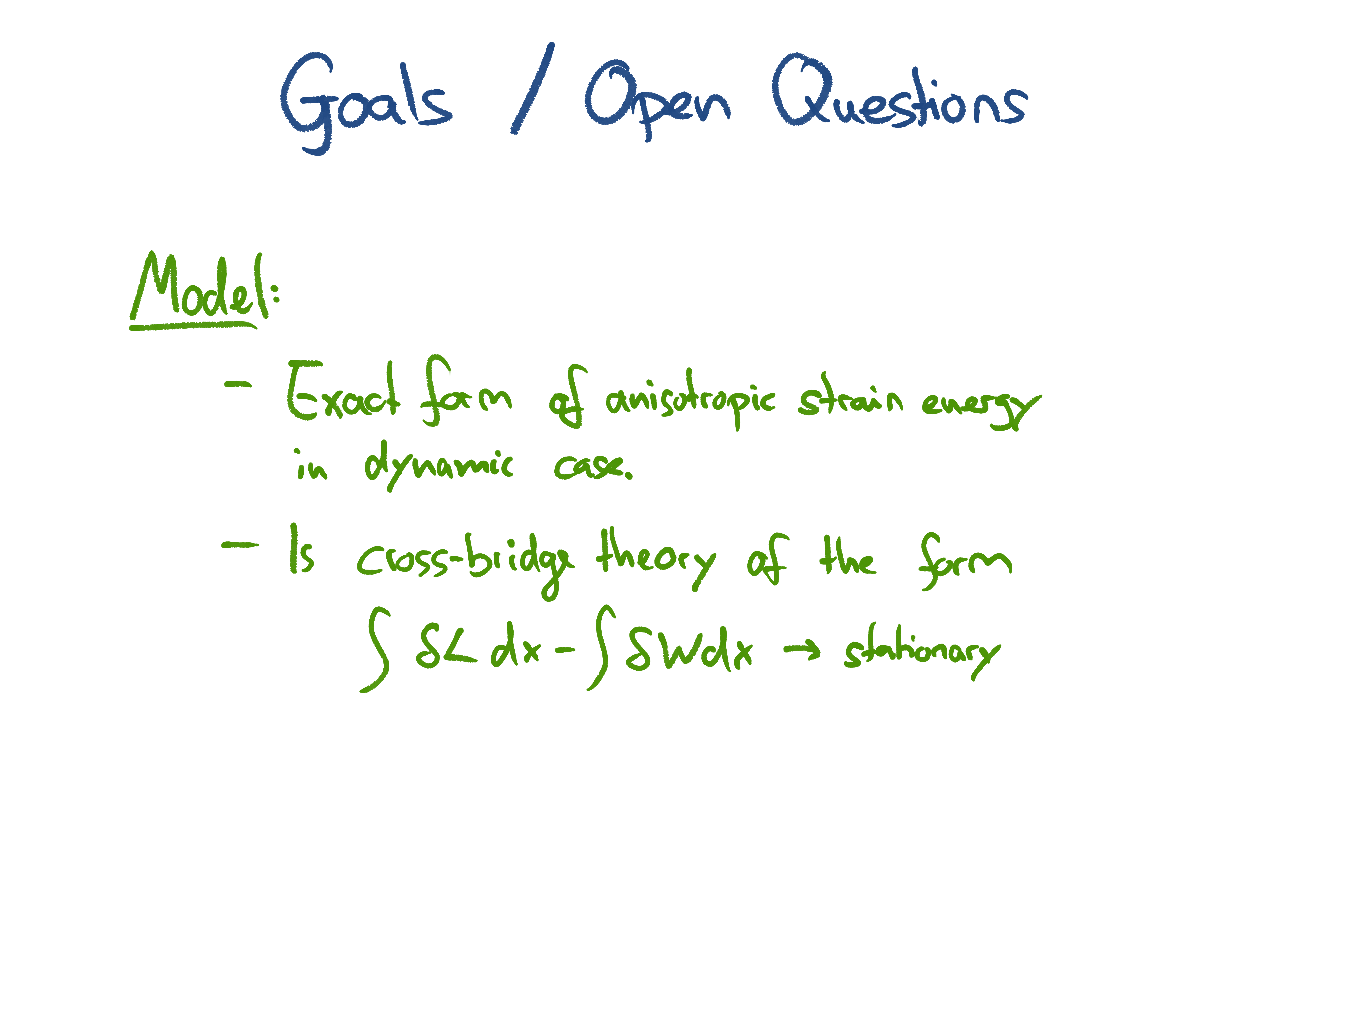 Goals / Open Questions
Model:
- Exact form of anisotropic strain energy
in dynamic case.
- Is cross-bridge theory of the form
∫ δL dx - ∫ δW dx → stationary